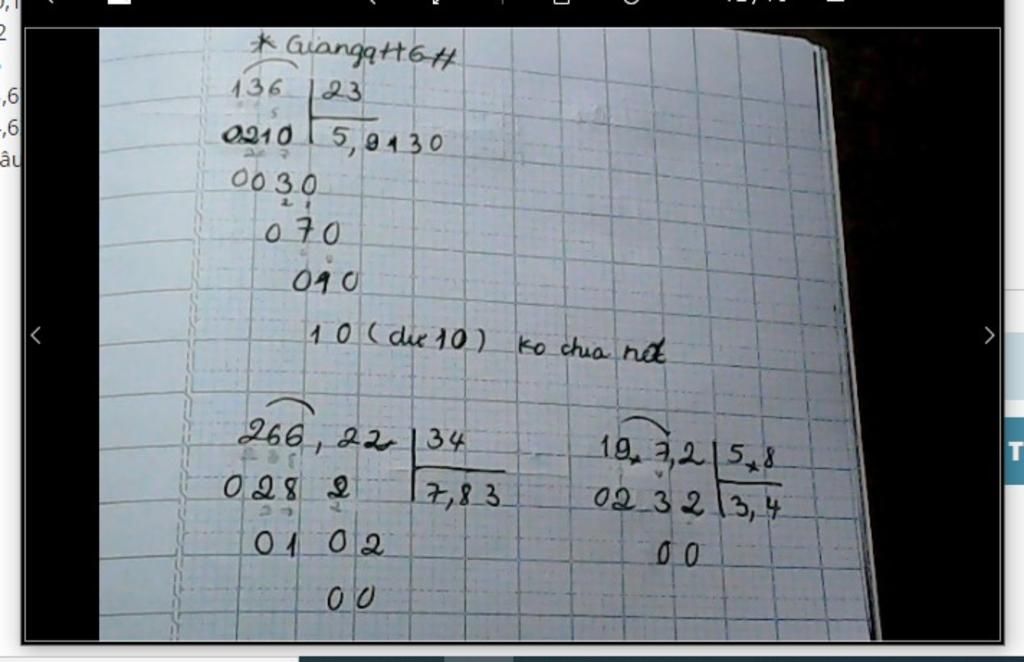 * Giangqtt6tt
136 23
0210 5,9130
0030
070
090
10 (dư 10) ko chia hết
266,22 34
028 2 7,83
01 02
00
19,7,2 5,8
02 32 3,4
00